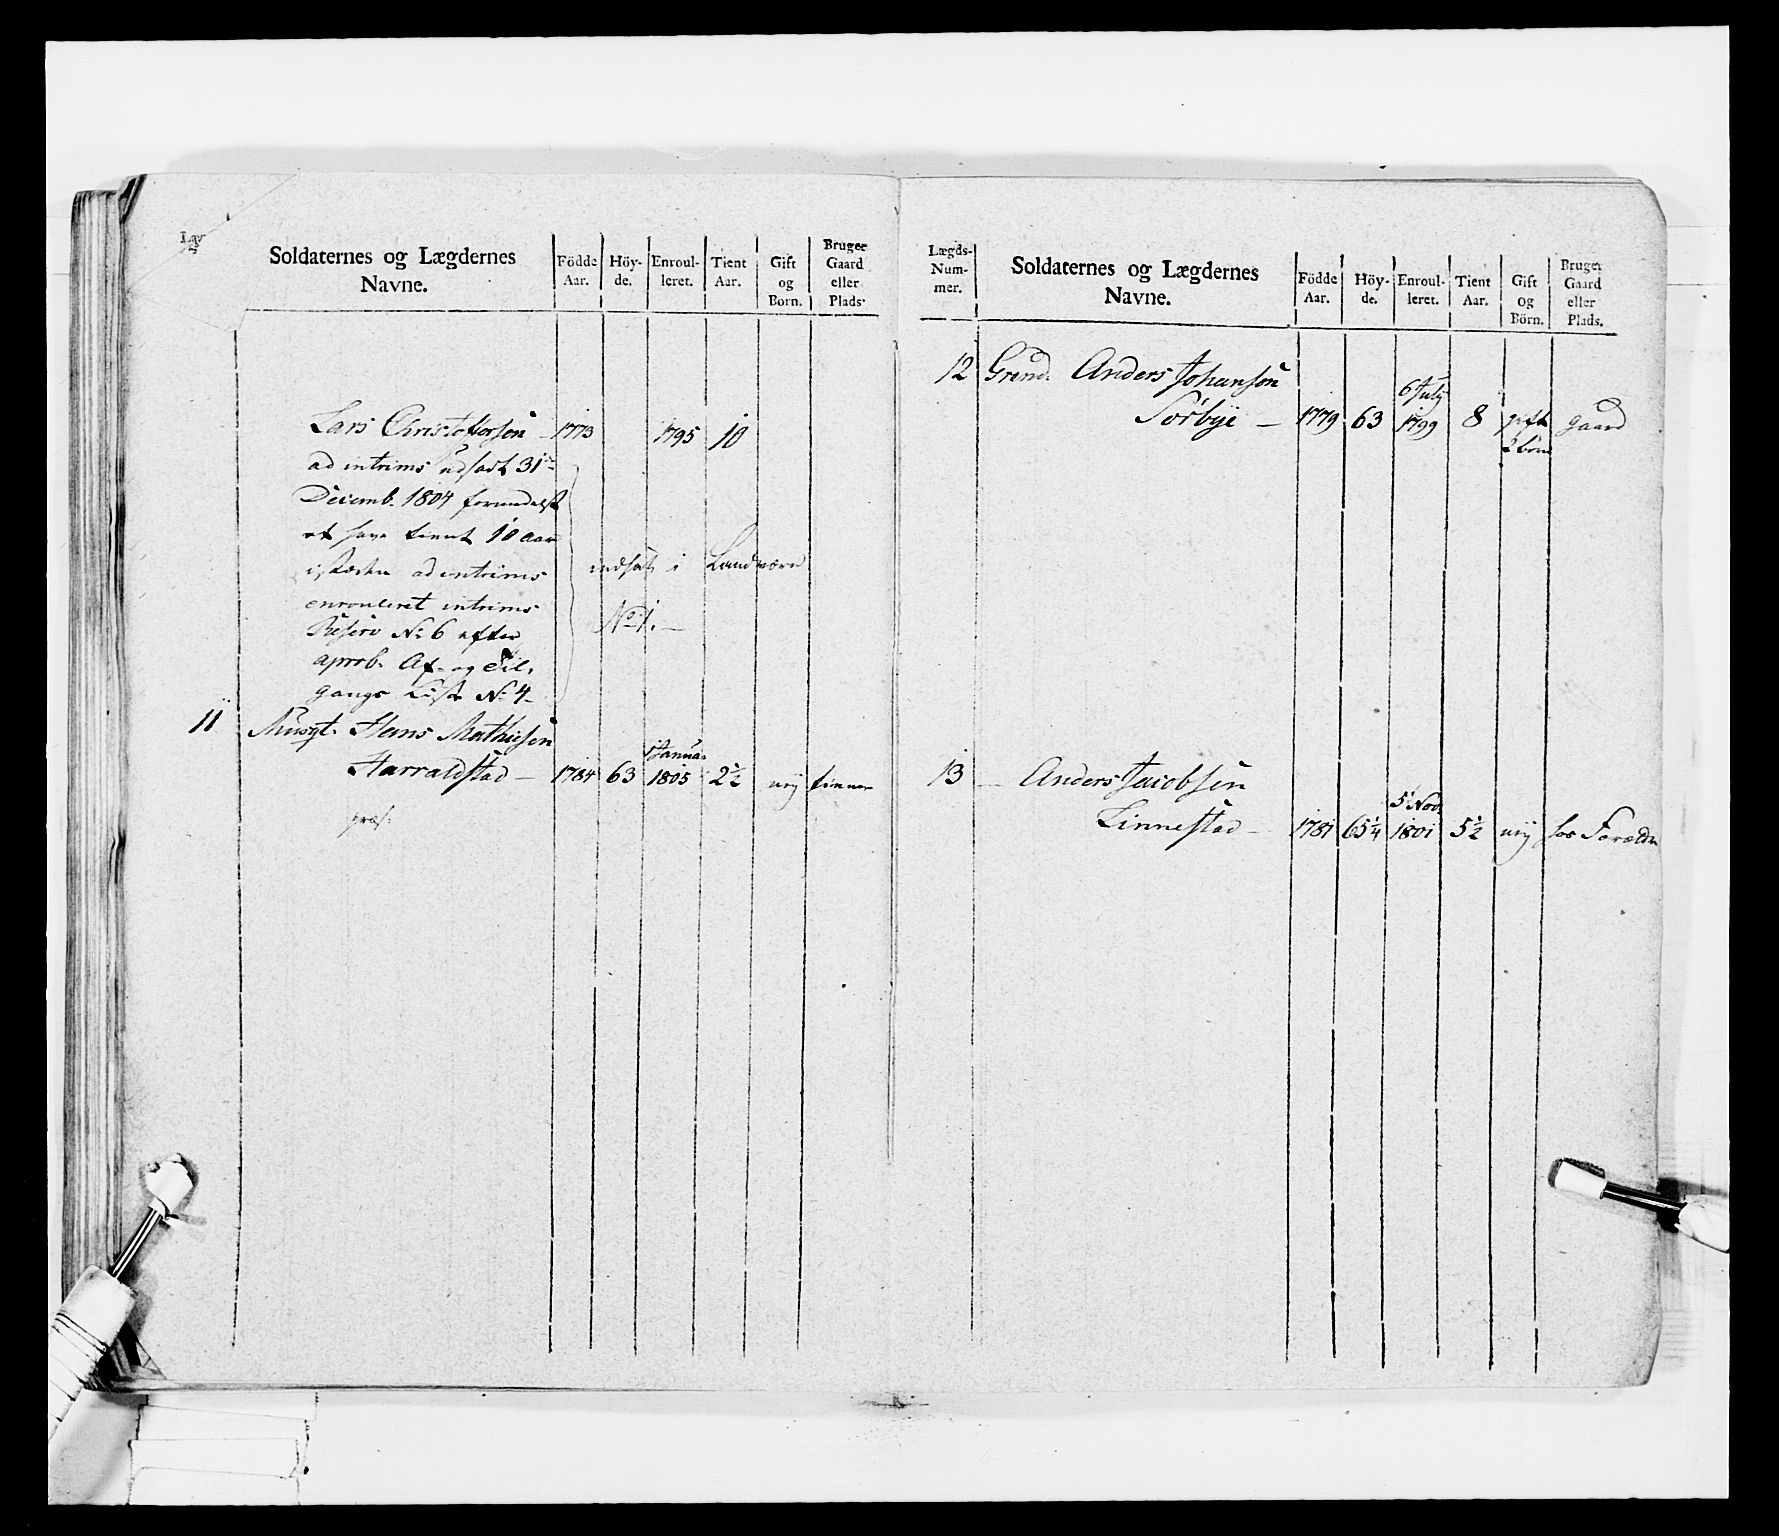 Soldaternes og Lægdernes
Navne.
Födde
Aar.
Höy-
de.
Enroul-
leret.
Tient
Aar.
Gift
og
Börn.
Bruger
Gaard
eller
Plads.
Lars Christofersen 1773 1795 10
ad intrims udsadt 31te
Decemb. 1804 formedelst
at have tient 10 aar
istæden ad intrims
enrouleret intrims
Reserv No 6 efter
aprob. Af- og Til-
gangs Liste No 4
indsat i Landværn
No 1. —
11 Musqt. Hans Mathiesen
1 Januar
Harraldstad — 1784 63 1805 2½ uiij tiener
præs.
Lægds-
Num-
mer.
Soldaternes og Lægdernes
Navne.
Födde
Aar.
Höy-
de.
Enroul-
leret.
Tient
Aar.
Gift
og
Börn.
Bruger
Gaard
eller
Plads.
12 Grend. Anders Johansen
6 July
Sörbye — 1779 63 1799 8 gift gaard
2 börn
13 — Anders Jacobsen
5 Nov.
Linnestad — 1781 65¼ 1801 5½ uiij hos Forældre